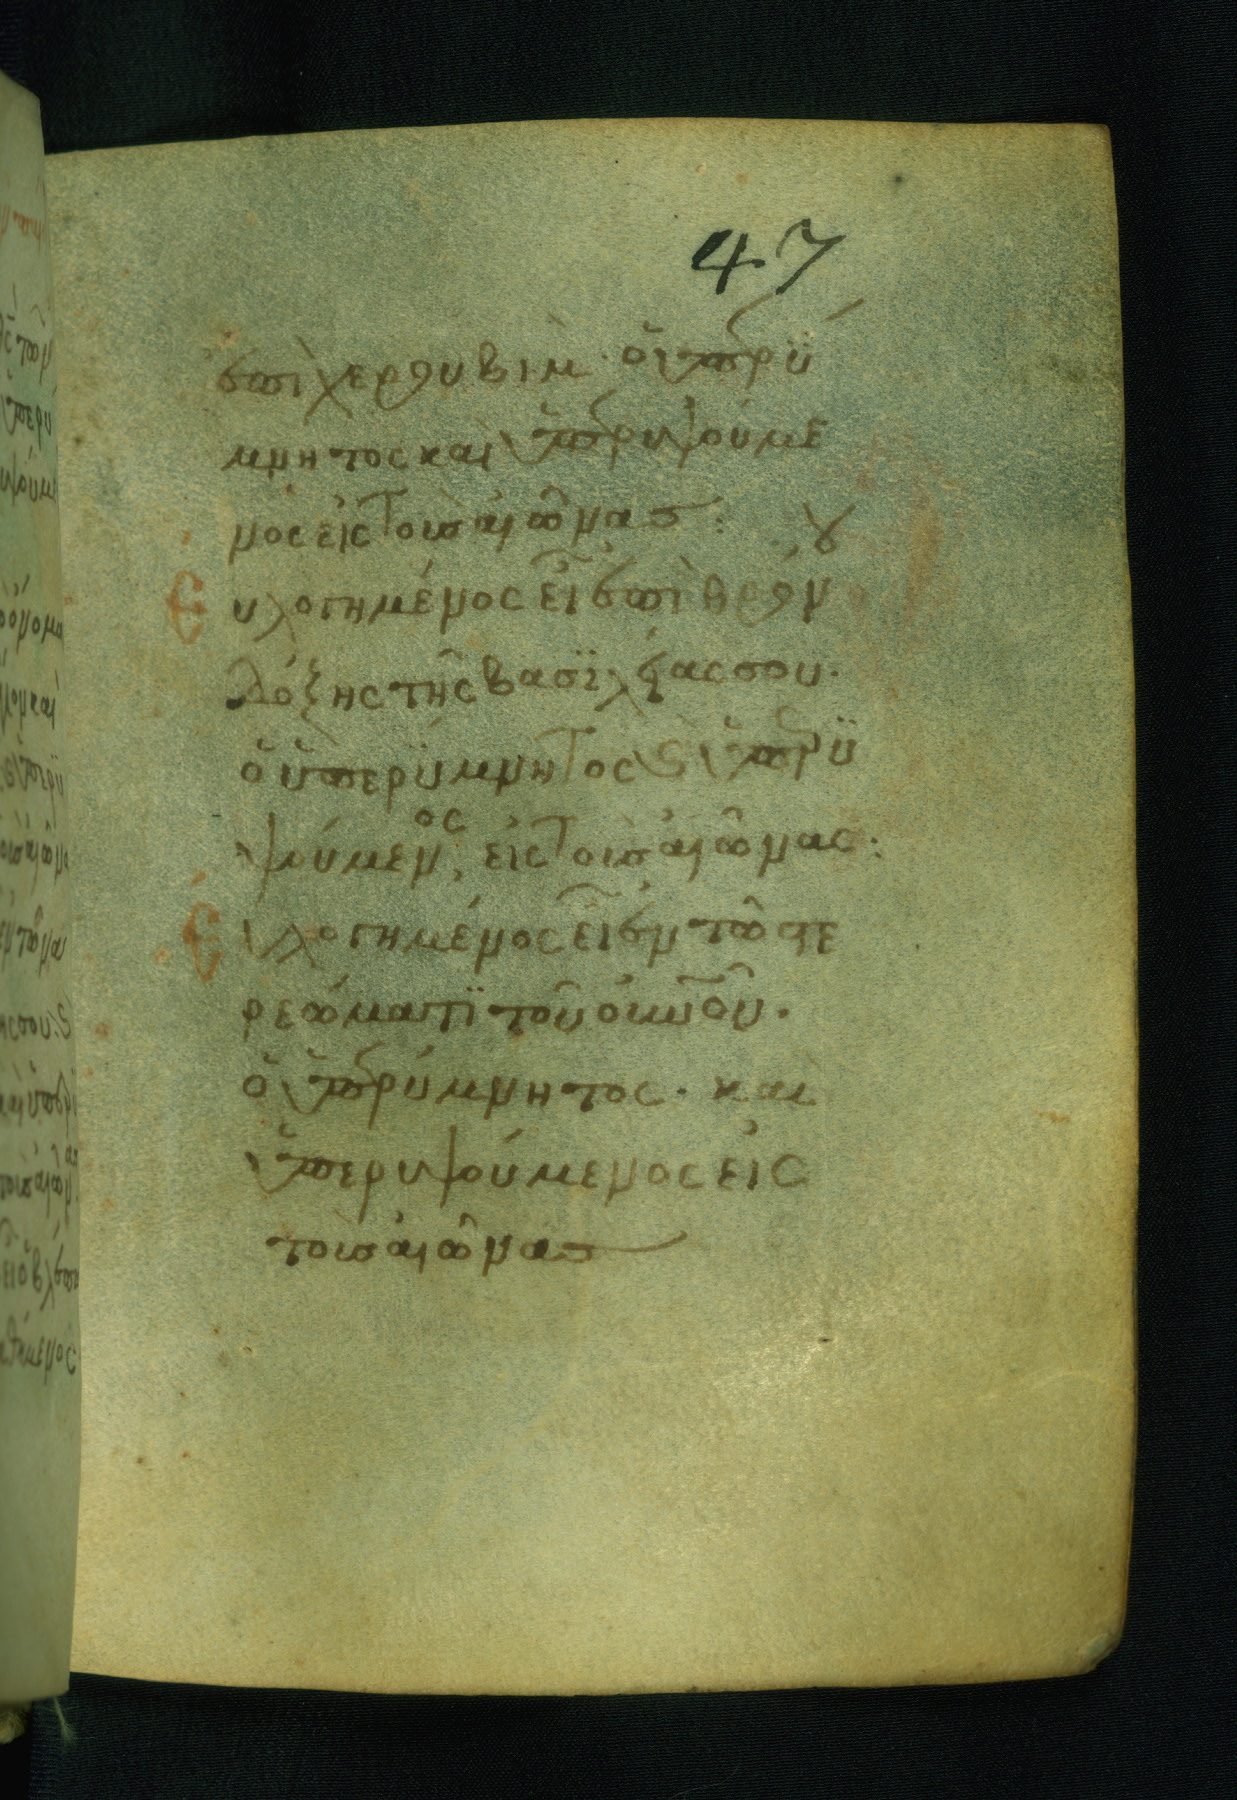 47
ἐπὶ χερουβίμ · ὁ ὑπερϋ
μνητος καὶ ὑπερυψούμε
νος εἰς τοὺς αἰῶνας :
Εὐλογημένος εἶ ἐπὶ θρόνου
δόξης τῆς βασϊλείας σου ·
ὁ ὑπερϋμνητος καὶ ὑπερϋ
ψούμενος, εἰς τοὺς αἰῶνας :
Εὐλογημένος εἶ ἐν τῶ στε
ρεώματϊ τοῦ οὐνοῦ ·
ὁ ὑπερύμνητος · και
ὑπερυψούμενος εἰς
τοὺς αἰῶνας